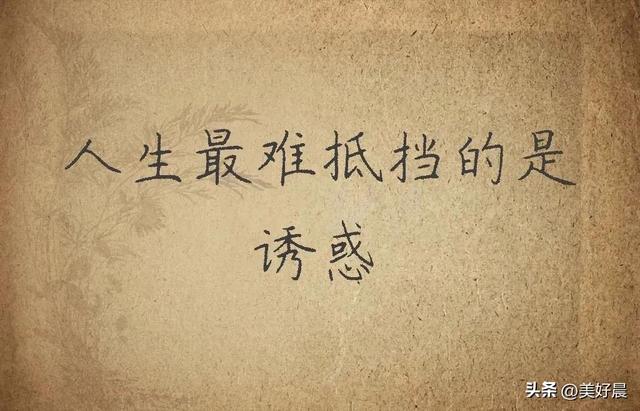 人生最难抵挡的是
诱惑
头条 @美好晨